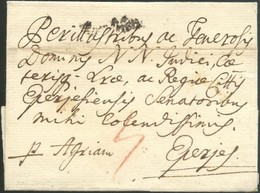 Perillustribus ac Generosis
Dominis N N Judici, Cæ
teris Lræ, ac Regiæ Cittis
Eperjesiensis Senatoribus
mihi Colendissimis
pr Agriam
Eperjes